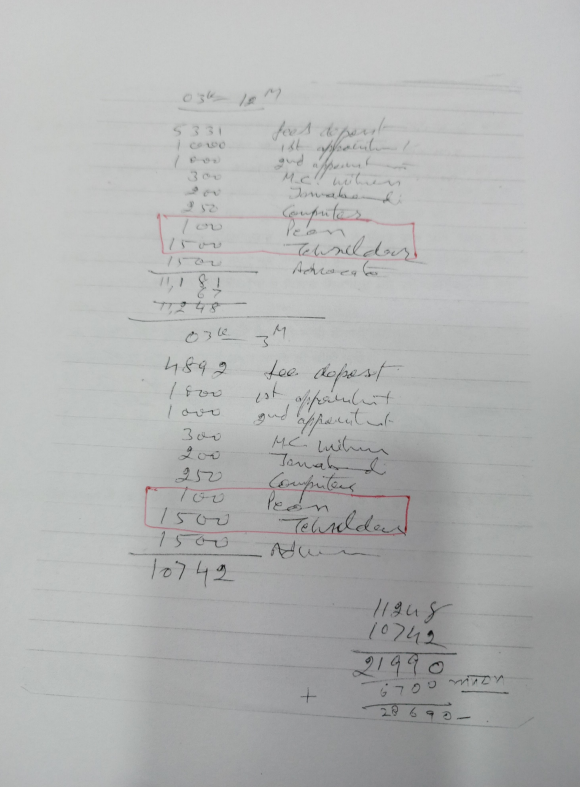 03K - 12M
5331 fees deposit
10000 1st appointment
1000 2nd appointment
300 M.C. witness
200 Jamabandi
250 Computer
100 Peon
1500 Tehseldar
1500 Advocate
11,181
67
11,248
03K - 3M
4892 fee deposit
1000 1st appointment
1000 2nd appointment
300 M.C. witness
200 Jamabandi
250 Computer
100 Peon
1500 Tehseldar
1500
10742
11248
10742
21990
+ 6700
28690-